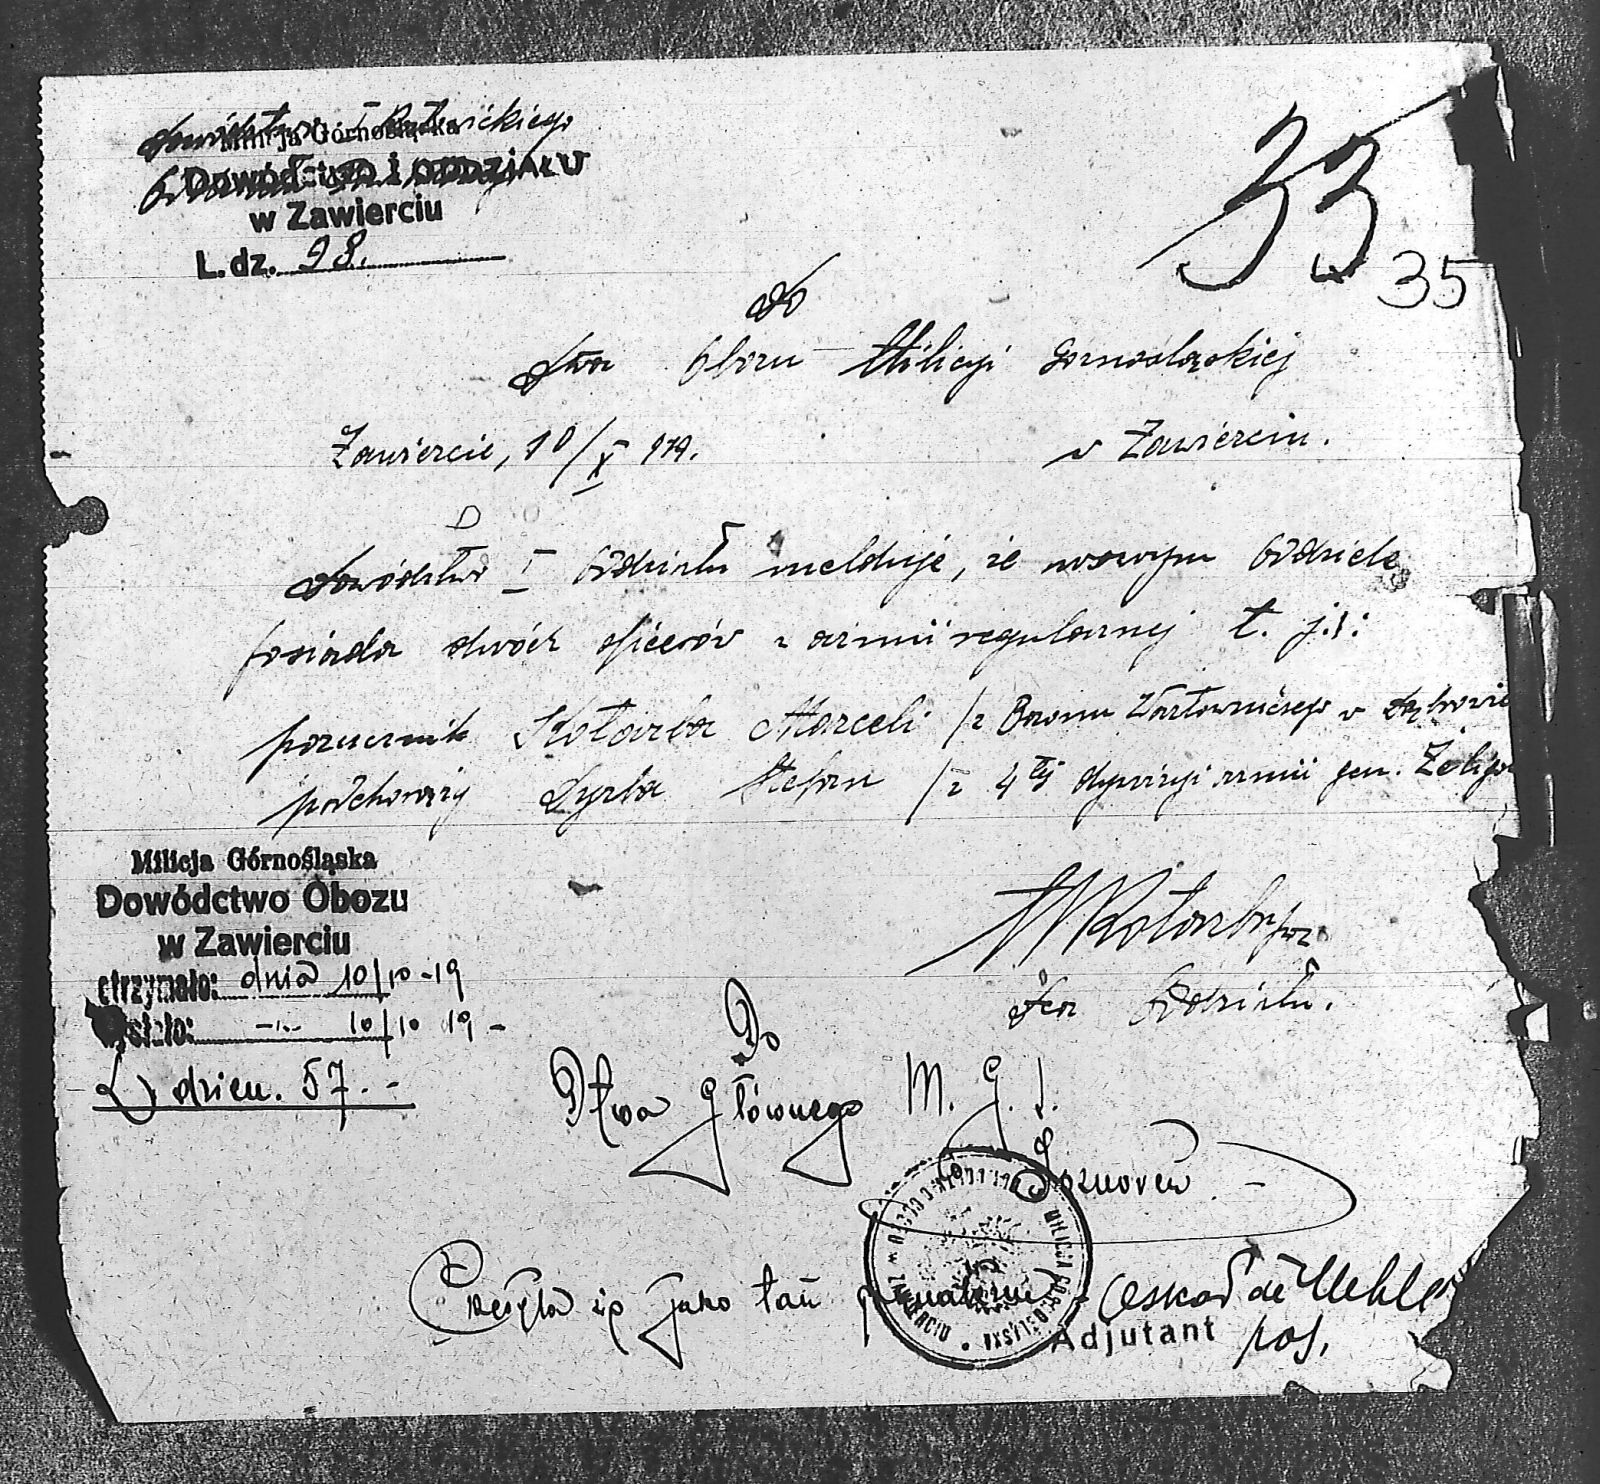 Milicja Górnośląska
Dowództwo I ODDZIAŁU
w Zawierciu
L. dz. 98.
33
35
Do
Dtwa Obozu Milicyi Górnośląskiej
Zawiercie, 10/X 919.
w Zawierciu.
Dowództwo I Oddziału melduje, że w swym Oddziele
posiada dwóch oficerów z armii regularnej t. j.:
porucznik Kotarba Marceli /z Baonu Wartowniczego w
podchorąży Syrba Stefan /z 4tej dywizyi armii gen.
MKotarba por.
Dca Oddziału.
Milicja Górnośląska
Dowództwo Obozu
w Zawierciu
otrzymało: dnia 10/10 -19
wysłało: -"- 10/10 19 -
L dzien. 57.-
Do
Dtwa Głównego M. G. Ś.
Sosnowiec
MILICJA GÓRNOŚLĄSKA
Przesyła się jako tam
Adjutant